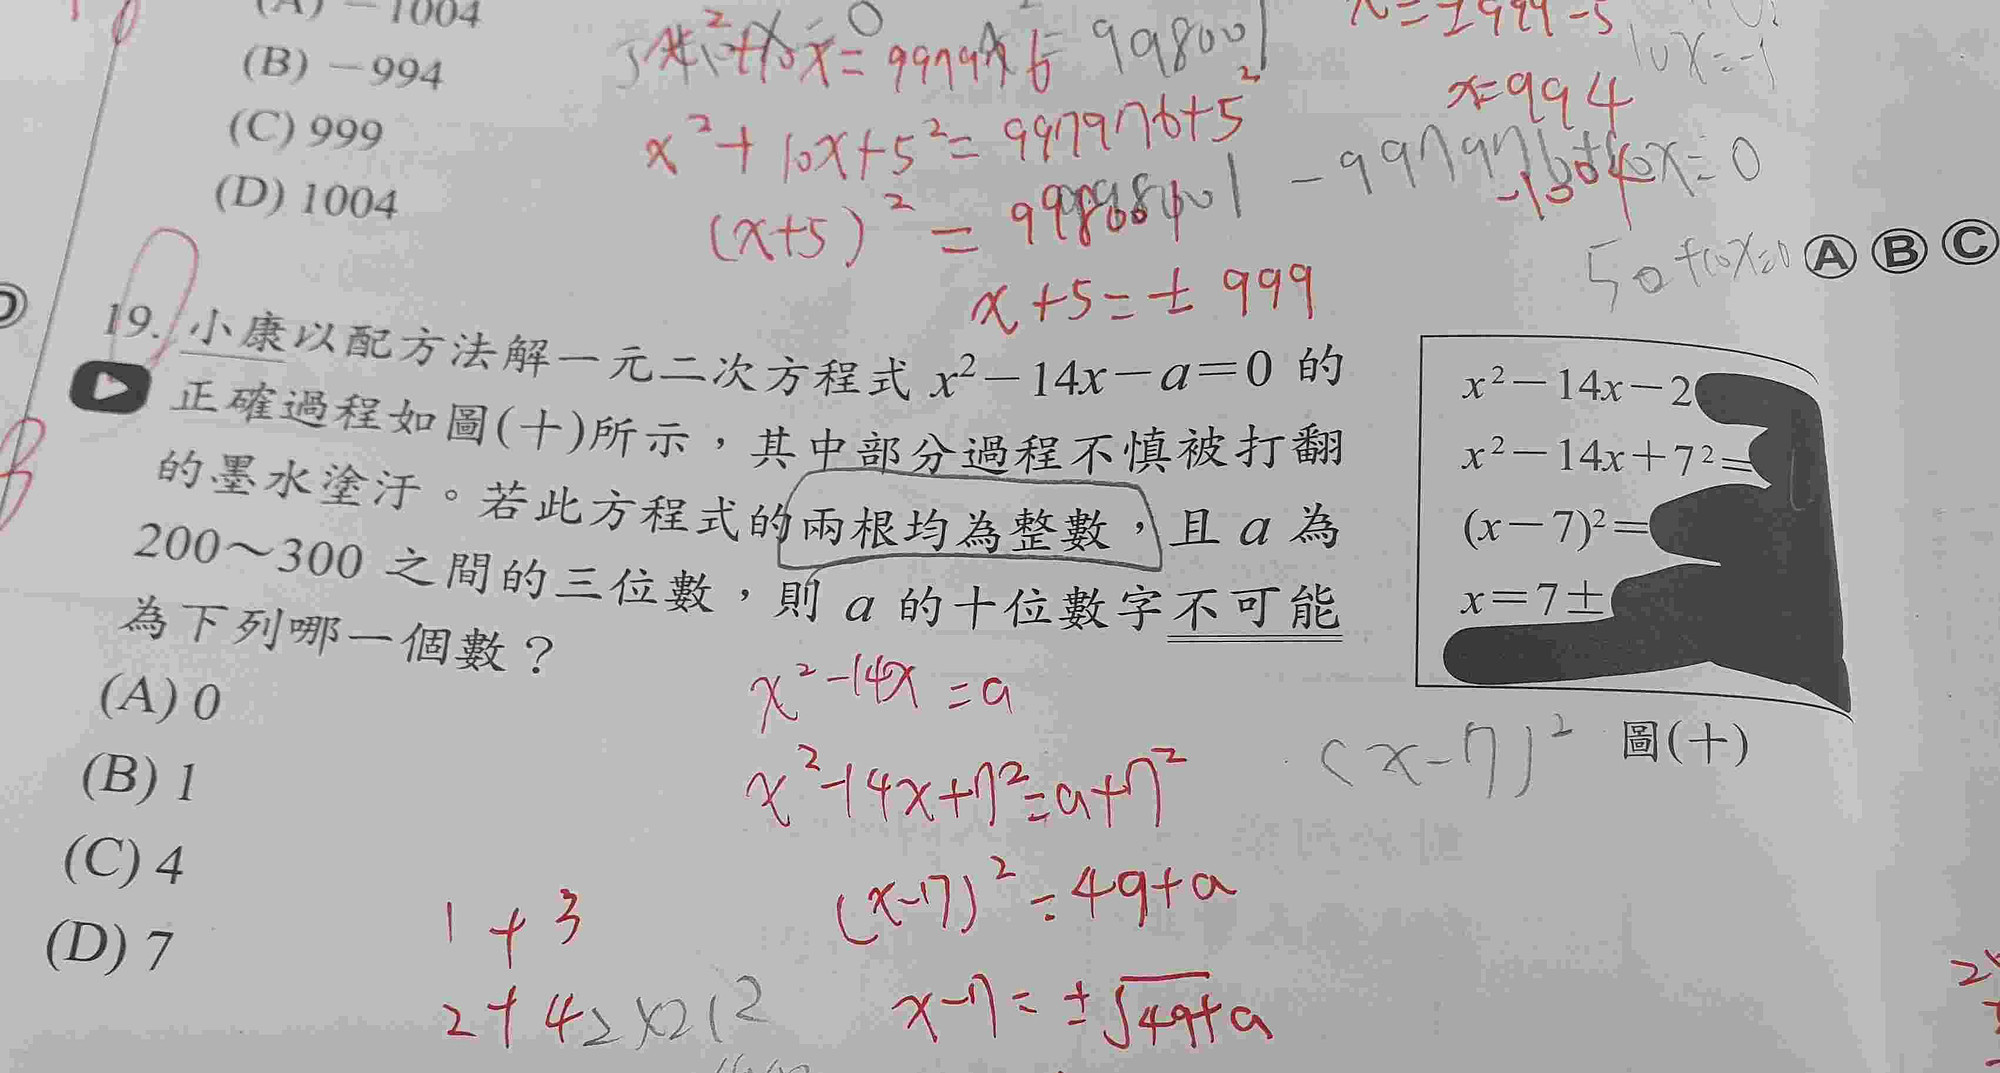 (A) －1004
(B) －994
(C) 999
(D) 1004
x²+10x+5²=997976+5²
(x+5)²=
x+5=±999
x=994
Ⓐ Ⓑ Ⓒ
19. 小康以配方法解一元二次方程式 x²－14x－a＝0 的
正確過程如圖(十)所示，其中部分過程不慎被打翻
的墨水塗汙。若此方程式的兩根均為整數，且 a 為
200～300 之間的三位數，則 a 的十位數字不可能
為下列哪一個數？
(A) 0
(B) 1
(C) 4
(D) 7
x²－14x－2
x²－14x＋7²＝
(x－7)²＝
x＝7±
圖(十)
(x-7)²
x²-14x=a
x²-14x+7²=a+7²
(x-7)²=49+a
x-7=±√49+a
1+3
2+4